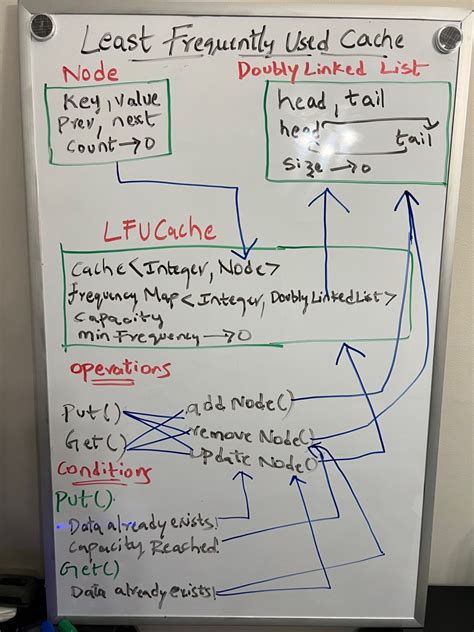 Least Frequently Used Cache
Node
Key, Value
Prev, next
Count → 0
Doubly Linked List
head, tail
head
tail
Size → 0
LFUCache
Cache<Integer, Node>
Frequency Map<Integer, DoublyLinkedList>
Capacity
min Frequency → 0
Operations
Put()
Get()
add Node()
remove Node()
update Node()
Conditions
Put()
Data already exists!
Capacity Reached
Get()
Data already exists!